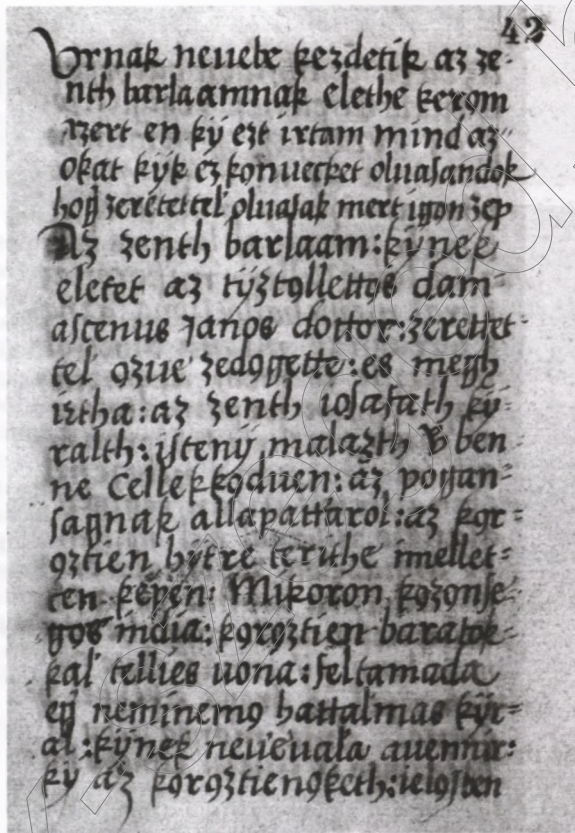 42
Urnak neuebe kezdetik az ze-
nth barlaamnak elethe kerom
azert en kÿ ezt irtam mind az
okat kÿk ez konuecket oluasandok
hogÿ zeretettel oluasak mert igon zep
Az zenth barlaam: kÿnek
eletet az tÿztollettos dam
ascenus Janos dottor: zerettet-
tel ozue zedogette: es megh
irtha: az zenth iosafath kÿ-
ralth: istenÿ malazth v ben
ne Cellekkoduen: az pogan-
sagnak allapattarol: az kor=
oztien hÿtre terithe imellet=
ten kepen: Mikoron kozonse-
gos india: koroztien baratok-
kal tellies uona: feltamada
egÿ neminemo hattalmas kÿr=
al: kÿnek neueuala auennir:
kÿ az koroztienoketh: